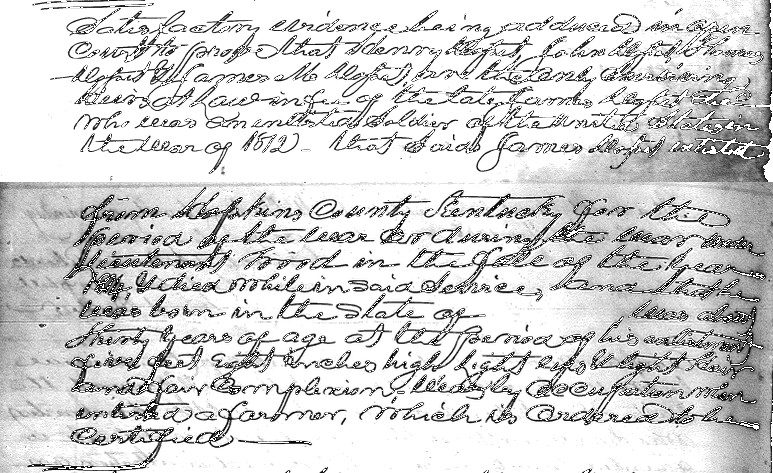 Satisfactory evidence being adduced in open
Court to prove that Henry John Thomas
& James M are the only surviving
heirs at law in fee of the late James
who was an enlisted soldier of the United States in
the War of 1812 - that said James enlisted
from Hopkins County Kentucky for the
period of the war & during the war under
Lieutenant Hood in the fall of the year
& died while in said service, and that he
was born in the State of was about
thirty years of age at the period of his enlistment
five feet eight inches high light eyes light hair
and fair complexion, was by occupation when
enlisted a farmer, which is ordered to be
certified